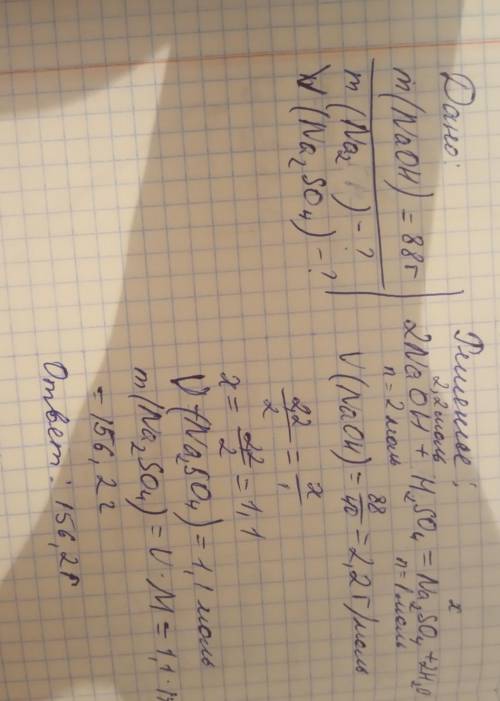 Дано:
m(NaOH) = 88г
m(Na₂ ) - ?
ν(Na₂SO₄) - ?
Решение:
2,2моль x
2NaOH + H₂SO₄ = Na₂SO₄ + 2H₂O
n = 2моль n = 1моль
V(NaOH) = 88/40 = 2,2г/моль
2,2/2 = x/1
x = 2,2/2 = 1,1
V(Na₂SO₄) = 1,1 моль
m(Na₂SO₄) = V · M = 1,1 ·
= 156,2г
Ответ: 156,2г